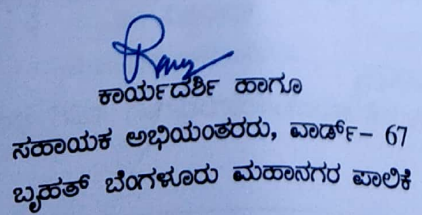 ಕಾರ್ಯದರ್ಶಿ ಹಾಗೂ
ಸಹಾಯಕ ಅಭಿಯಂತರರು, ವಾರ್ಡ್- 67
ಬೃಹತ್ ಬೆಂಗಳೂರು ಮಹಾನಗರ ಪಾಲಿಕೆ